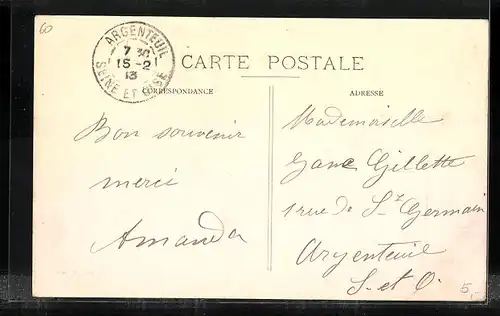 60
ARGENTEUIL
7 30
15-2
13
SEINE ET OISE
CARTE POSTALE
CORRESPONDANCE
ADRESSE
Bon souvenir
merci
Amanda
Mademoiselle
Gillette
1 rue de St Germain
Argenteuil
S. et O.
5,-